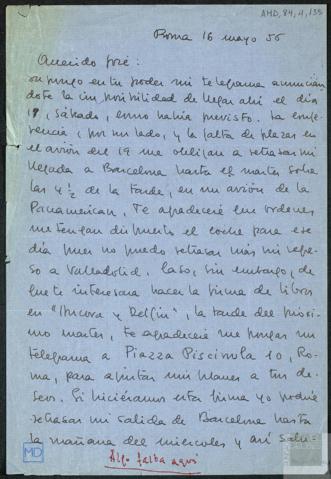 AMD, 84, 4, 135
Roma 16 mayo 56
Querido José:
supongo en tu poder mi telegrama anuncián
dote la imposibilidad de llegar ahí el día
19, sábado, como había previsto. La confe
rencia, por un lado, y la falta de plazas en
el avión del 19 me obligan a retrasar mi
llegada a Barcelona hasta el martes sobre
las 4 ½ de la tarde, en un avión de la
Panamerican. Te agradeceré que ordenes
me tengan dispuesto el coche para ese
día pues no puedo retrasar más mi regre-
so a Valladolid. Caso, sin embargo, de
que te interesara hacer la firma de libros
en "Áncora y Delfín", la tarde del próxi
mo martes, te agradeceré me pongas un
telegrama a Piazza Piscinula 10, Ro-
ma, para ajustar mis planes a tus de-
seos. Si hiciéramos esta firma yo podría
retrasar mi salida de Barcelona hasta
la mañana del miércoles y así salu-
MD
Algo falta aquí